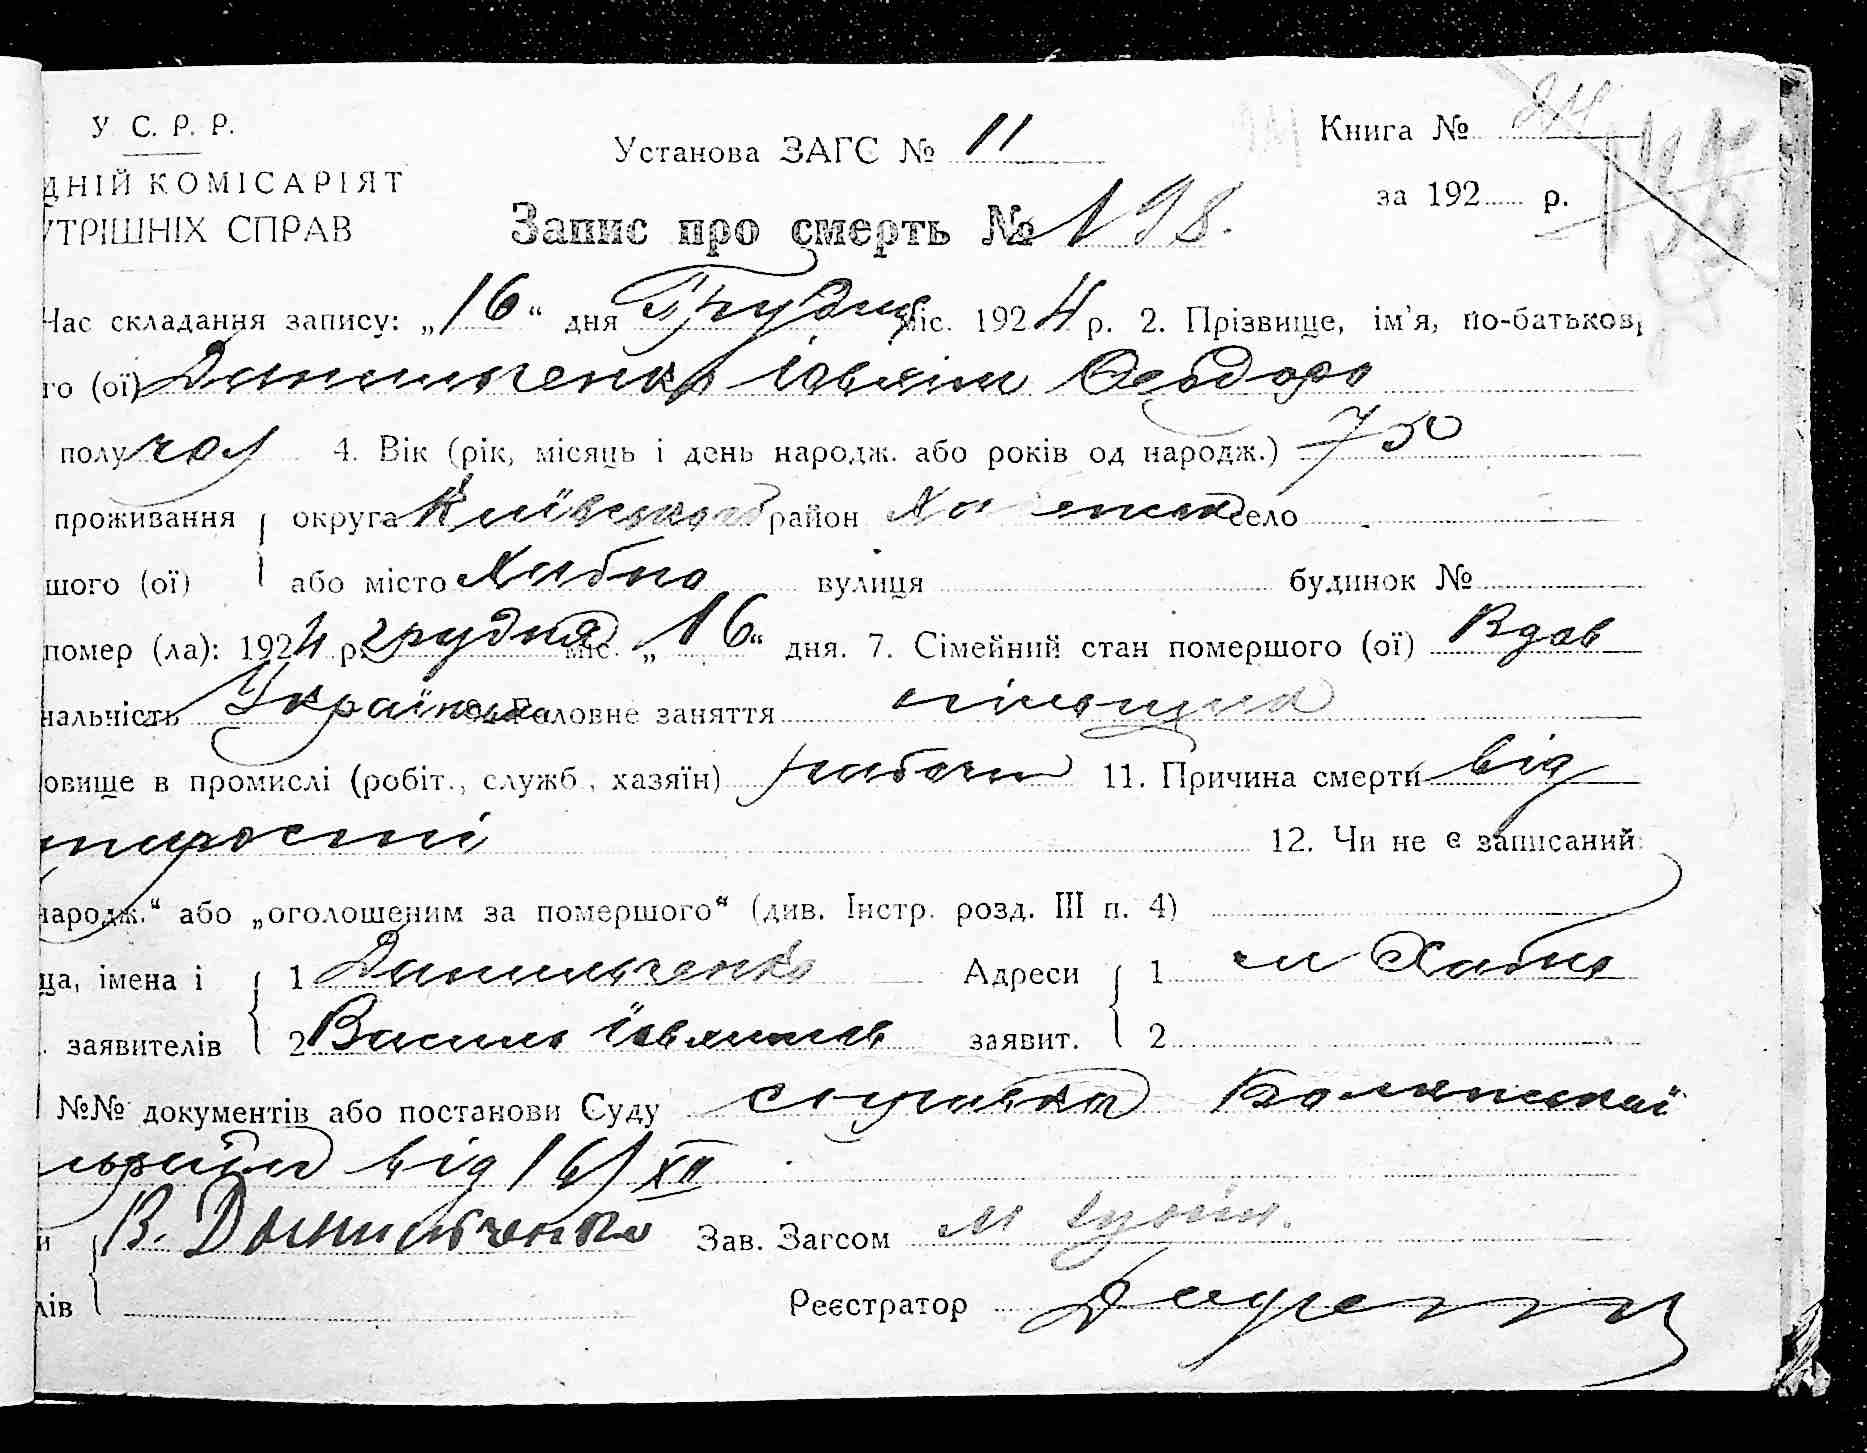 У. С. Р. Р.
Установа ЗАГС № 11
Книга №
ДНІЙ КОМІСАРІЯТ
за 192 р.
УТРІШНІХ СПРАВ
Запис про смерть № 198.
Час складання запису: „16“ дня Грудня міс. 1924 р. 2. Прізвище, ім'я, по-батьков,
го (ої) Данильченко Іовхим Феодоро
полу чол 4. Вік (рік, місяць і день народж. або років од народж.) 75
проживання округа Київської район село
шого (ої) або місто Хабно вулиця будинок №
помер (ла): 1924 р. грудня міс. „16“ дня. 7. Сімейний стан помершого (ої) Вдов
нальність Українська Головне заняття
овище в промислі (робіт., служб., хазяїн) 11. Причина смерти від
старости 12. Чи не є записаний
народж.“ або „оголошеним за помершого“ (див. Інстр. розд. III п. 4)
ца, імена і 1 Данильченко Адреси 1 м Хабно
заявителів 2 Василь Іовхимов заявит. 2
№№ документів або постанови Суду
від 16/XII
и В. Данильченко Зав. Загсом
лів Реєстратор